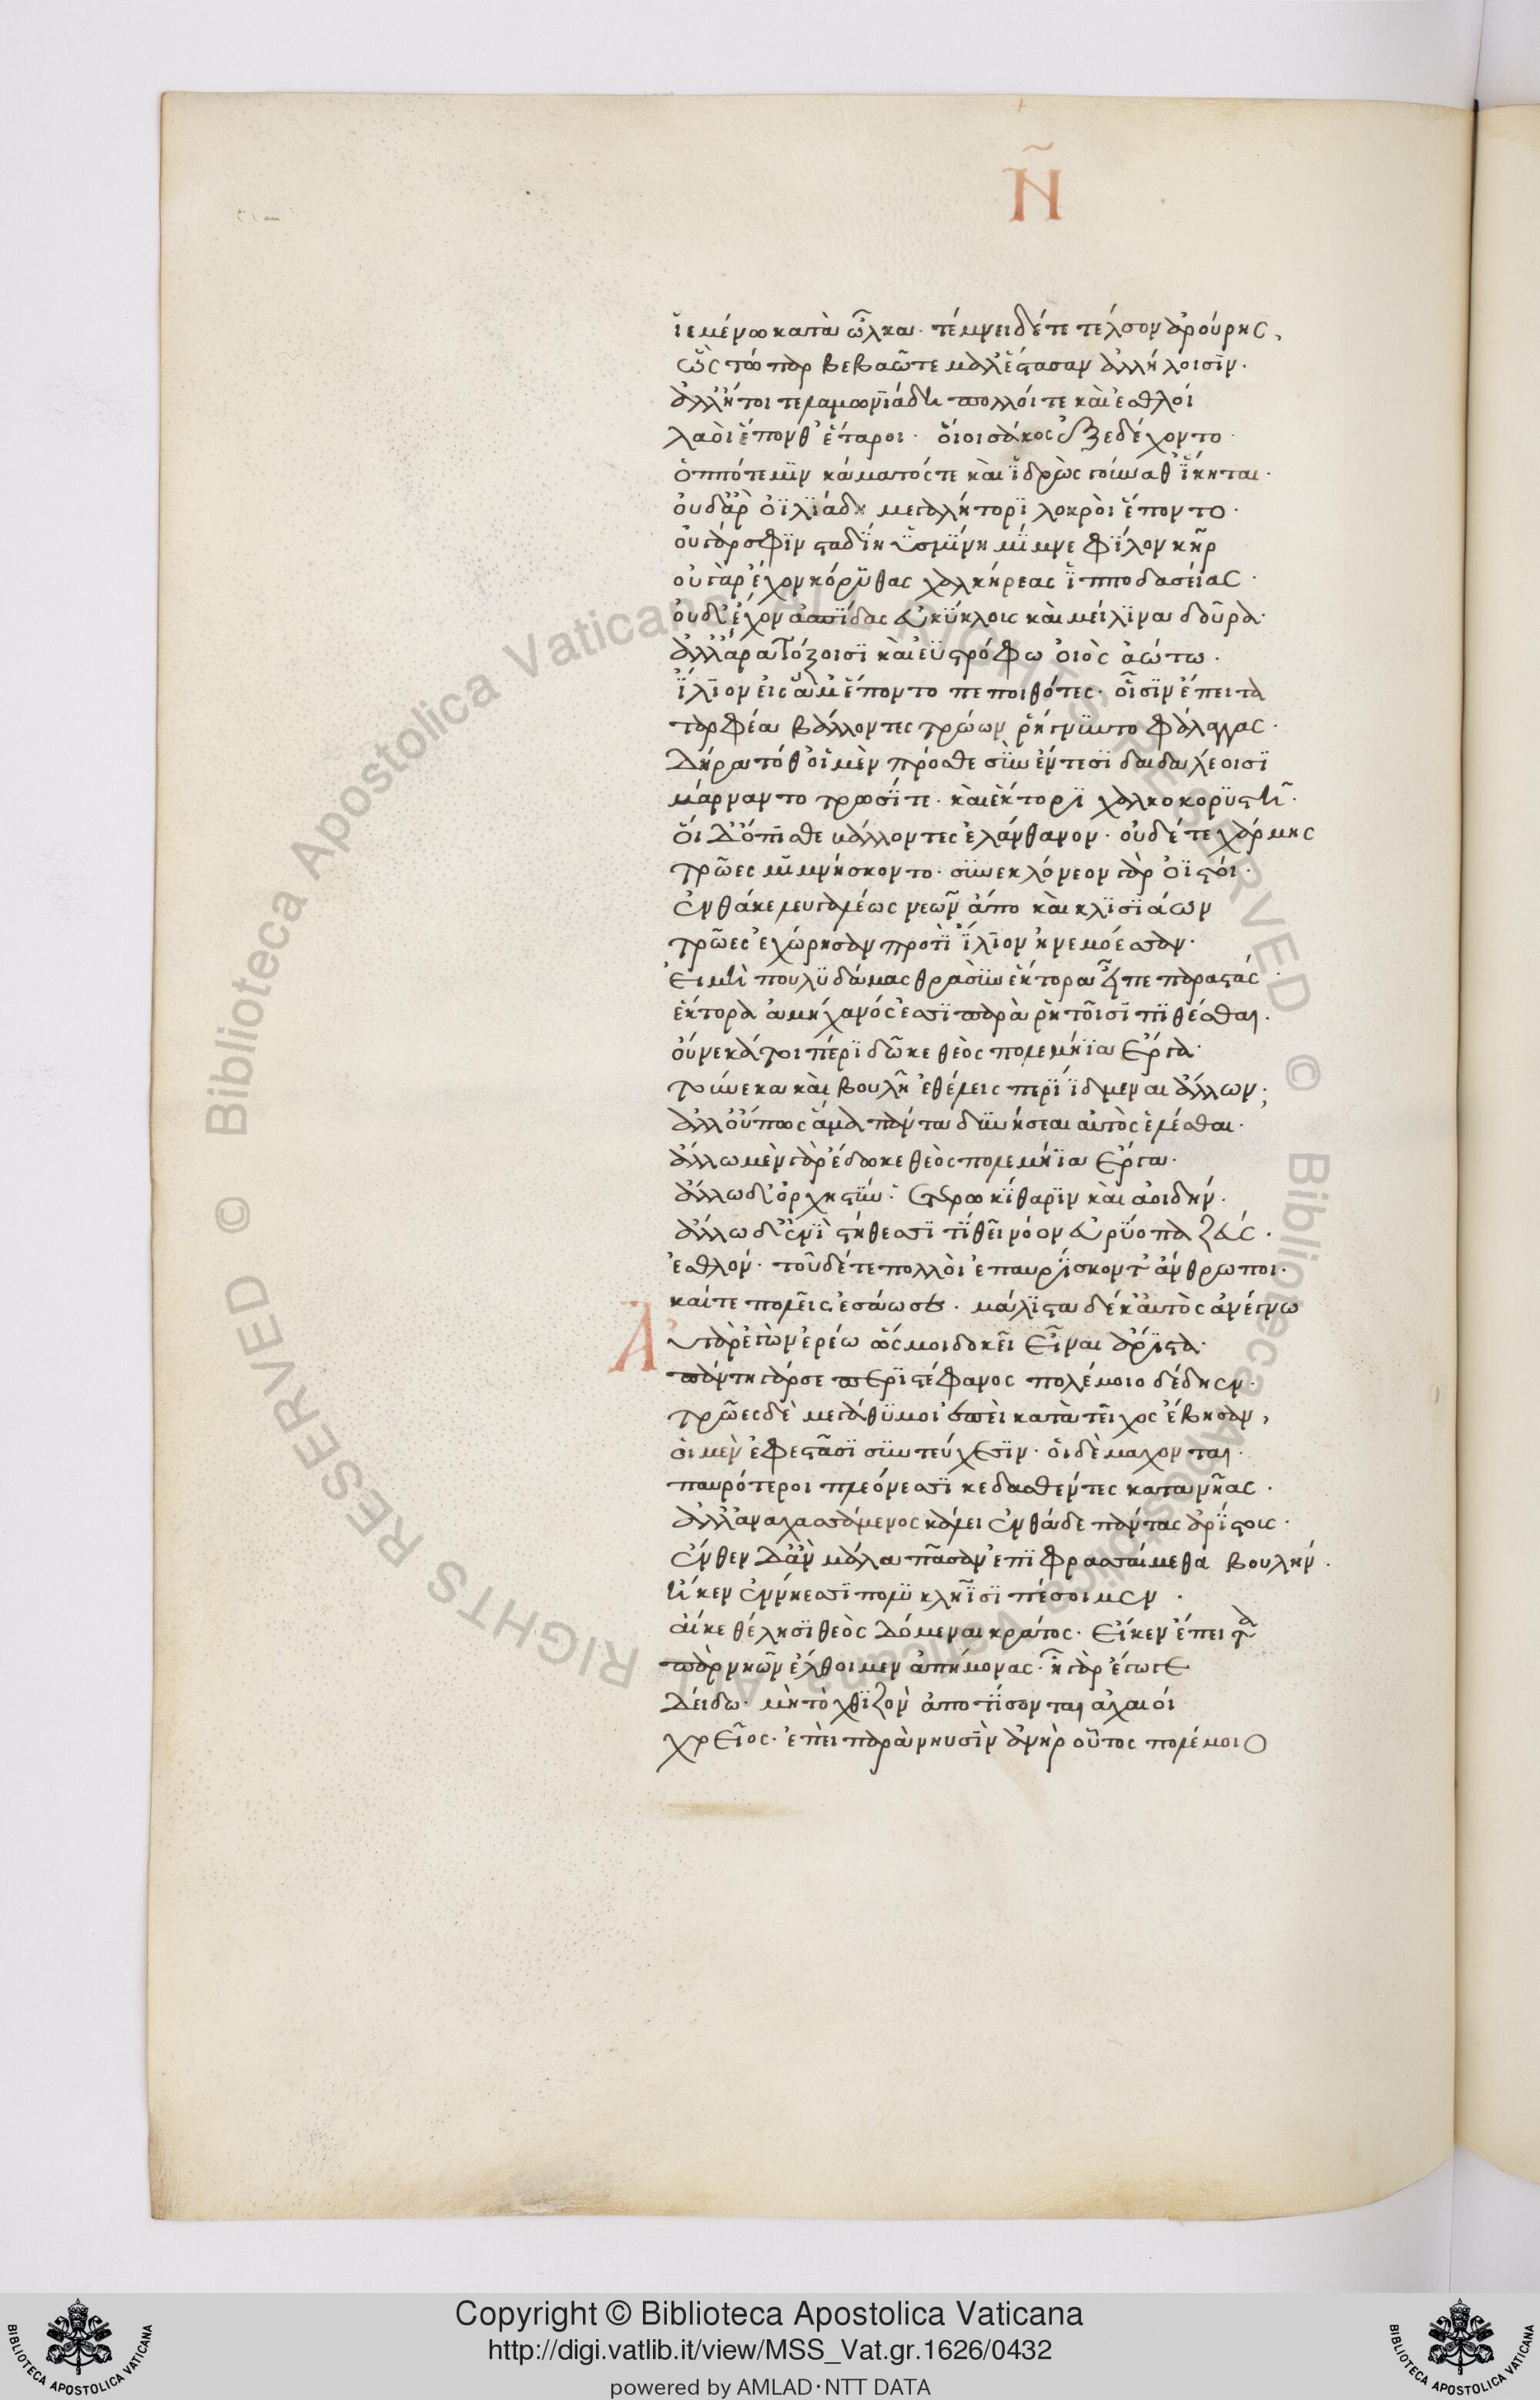 Ν̃
ἱεμένω κατὰ ὦλκα· τέμνει δέτε τέλσον ἀρούρης,
ὣς τὼ παρ βεβαῶτε μάλ' ἕστασαν ἀλλήλοισϊν·
ἀλλ' ἤτοι τελαμωνϊάδη πολλόι τε κὰι ἐσθλόι
λαὸι ἕπονθ' ἕταροι· ὅι οι σάκος ἐξεδέχοντο·
ὁππότε μϊν κάματός τε κὰι ἵδρὼς γούναθ' ἵκηται·
ὀυδ' ἂρ ὀϊλϊάδη μεγαλήτορϊ λοκρὸι ἕποντο·
ὀυ γάρ σφϊν σταδίη ὑσμίνη μίμνε φίλον κῆρ
ὀυ γὰρ ἔχον κόρυθας χαλκήρεας ἱπποδασείας·
ὀυδ' ἔχον ἀσπίδας ἐυκύκλους κὰι μείλϊνα δοῦρα·
ἀλλ' ἄρα τόξοισϊ κὰι ἐϋστρόφω ὀιὸς ἀώτω·
ἴλϊον ἐις ἅμ' ἕποντο πεποιθότες· οἷσϊν ἔπειτα
ταρφέα βάλλοντες τρώων ῥήγνυντο φάλαγγας·
Δήρα τόθ' ὁι μὲν πρόσθε σὺν ἔντεσϊ δαιδαλέοισϊ
μάρναντο τρωσίτε· κὰι ἕκτορϊ χαλκοκορυστῆ·
ὅι Δ' ὄπϊσθε βάλλοντες ἐλάνθανον· ὀυδέ τε χάρμης
τρῶες μϊμνήσκοντο· συνεκλόνεον γὰρ ὀϊστόι·
ἔνθά κε λευγαλέως νεῶν ἄπο κὰι κλϊσϊάων
τρῶες ἐχώρησαν προτὶ ἴλϊον ἠνεμόεσσαν·
ἐι μὴ πουλυδάμας θρασὺν ἕκτορα εἶπε παραστάς·
ἕκτορα ἀμήχανός ἐσσϊ παρὰ ῥητοῖσϊ πϊθέσθαι·
ὄυνεκά τοι πέρϊ δῶκε θεὸς πολεμήϊα ἔργα·
τούνεκα κὰι βουλῆ ἐθέλεις περϊ ἴδμεναι ἄλλων;
ἀλλ' ὄυπως ἅμα πάντα δυνήσεαι ἀυτὸς ἑλέσθαι·
ἄλλω μὲν γὰρ ἔδωκε θεὸς πολεμήϊα ἔργα·
ἄλλω δ' ὀρχηστύν· ἑτέρω κίθαρϊν κὰι ἀοιδήν·
ἄλλω δ' ἐνὶ στήθεσσϊ τϊθεῖ νόον ἐυρύοπα ζεύς·
ἐσθλόν· τοῦ δέ τε πολλὸι ἐπαυρίσκοντ' ἄνθρωποι·
καί τε πολεῖς ἐσάωσε· μάλϊστα δέ κ' ἀυτὸς ἀνέγνω
Ἀυτὰρ ἐγὼν ἐρέω ὥς μοι δοκεῖ εἶναι ἄρϊστα·
πάντη γάρ σε περϊ στέφανος πολέμοιο δέδηεν·
τρῶες δὲ μεγάθυμοι ἐπὲι κατὰ τεῖχος ἔβησαν,
ὁι μὲν ἐφεστᾶσϊ σὺν τεύχεσϊν· ὁι δὲ μάχονται·
παυρότεροι πλεόνεσσϊ κεδασθέντες κατὰ νῆας·
ἀλλ' ἀναχασσάμενος κάλει ἐνθάδε πάντας ἀρίστους·
ἔνθεν Δ' ἂν μάλα πᾶσαν ἐπϊφρασσαίμεθα βουλήν·
ἤ κεν ἐν νήεσσϊ πολυκλήϊσϊ πέσοιμεν·
ἄι κε θέλησϊ θεὸς Δόμεναι κράτος· ἔι κεν ἔπειτα
πὰρ νηῶν ἔλθοιμεν ἀπήμονας· ἦ γὰρ ἔγωγε
Δείδω· μὴ τὸ χθϊζὸν ἀποτίσονται ἀχαιόι
χρεῖος· ἐπὲι παρὰ νηυσϊν ἀνὴρ οὗτος πολέμοιο
Copyright © Biblioteca Apostolica Vaticana
http://digi.vatlib.it/view/MSS_Vat.gr.1626/0432
powered by AMLAD·NTT DATA